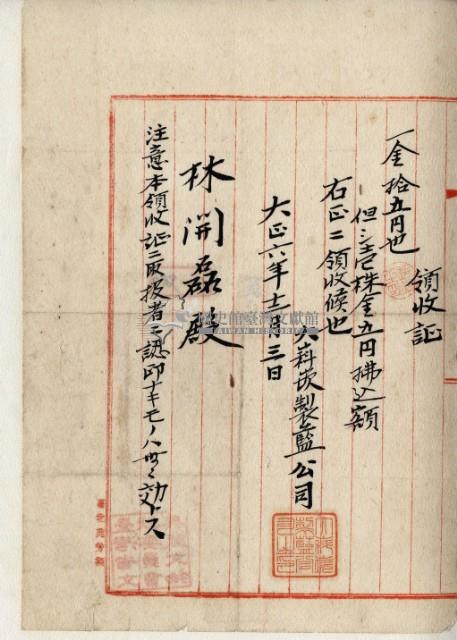 領收証
一金拾五円也
但シ壱株金五円拂込額
右正ニ領收候也
大正六年十一月三日
大科崁製藍公司
林開磊殿
注意本領收証ニ取扱者之認印ナキモノハ無效トス
國史館臺灣文獻館
TAIWAN HISTORICA